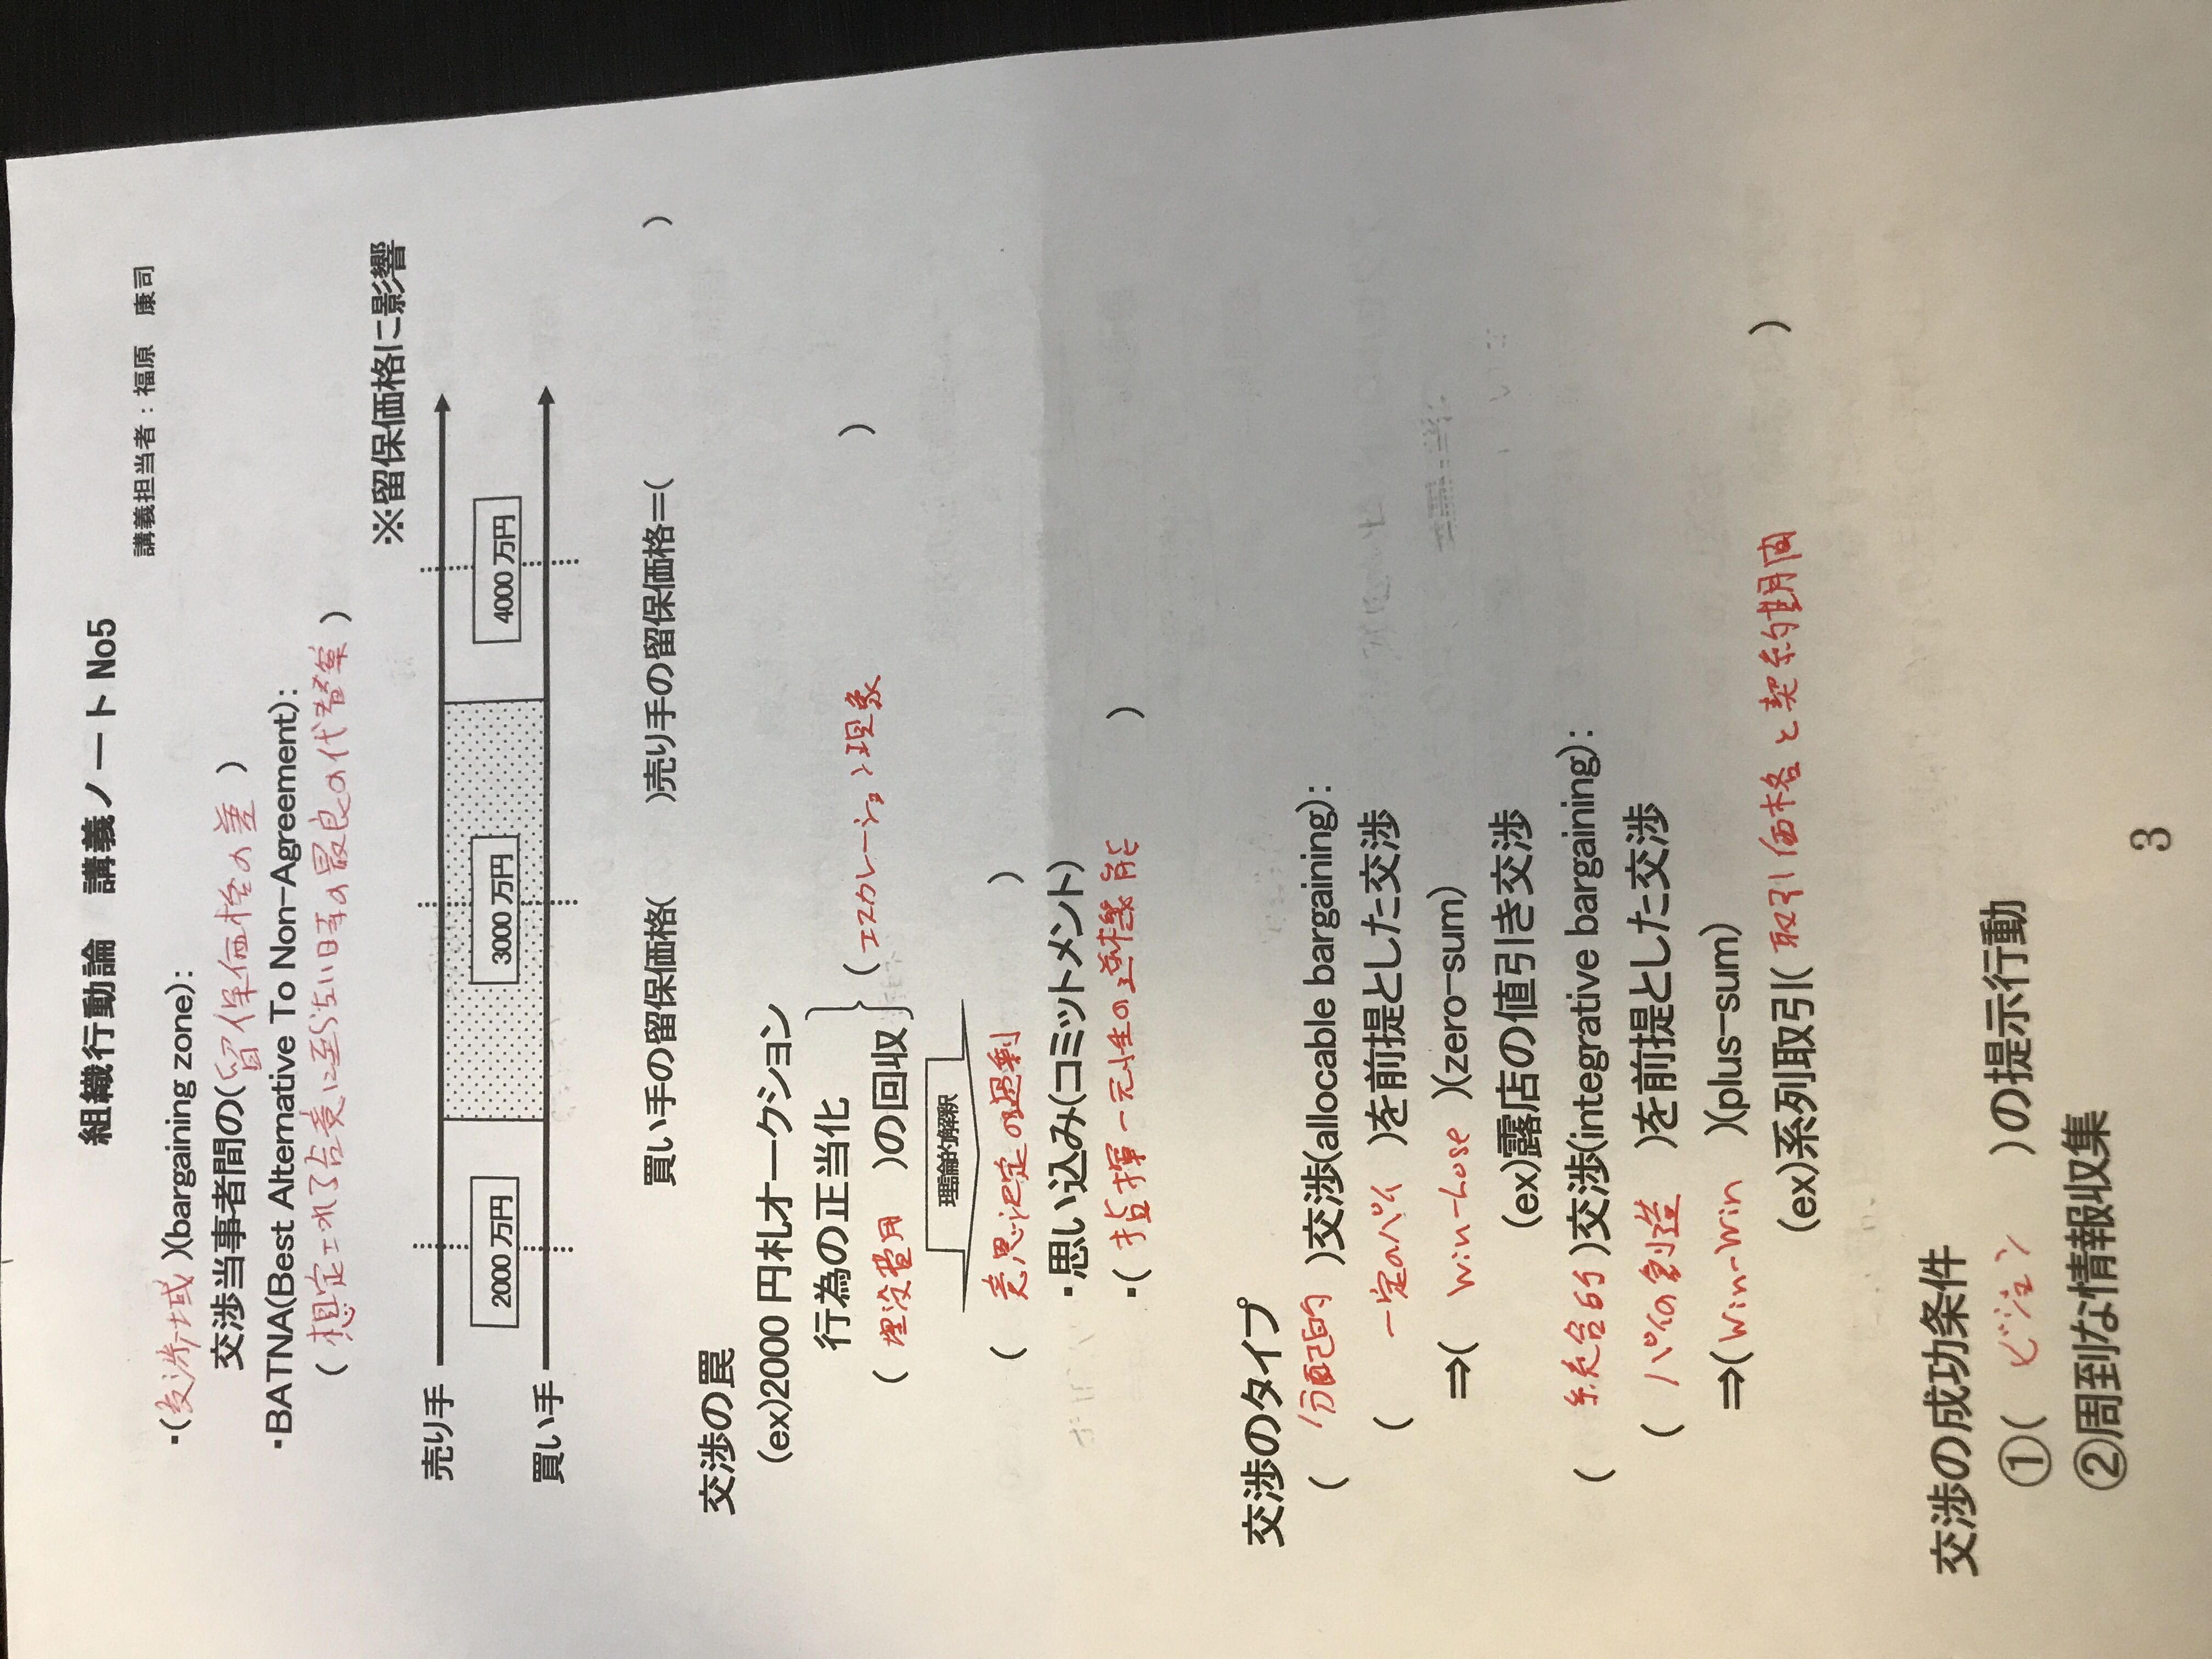 組織行動論　講義ノート No5
講義担当者：福原　康司
・(交渉域)(bargaining zone):
交渉当事者間の(留保価格の差)
・BATNA(Best Alternative To Non-Agreement):
(想定される合意に至らない時の最良の代替案)
※留保価格に影響
売り手
2000 万円 3000 万円 4000 万円
買い手
買い手の留保価格(　　)売り手の留保価格＝(　　　　)
交渉の罠
(ex)2000 円札オークション
行為の正当化
(エスカレーション現象)
(埋没費用)の回収
理論的解釈
(意思決定の過剰)
・思い込み(コミットメント)
・(指揮一元性の逆機能)
交渉のタイプ
(分配的)交渉(allocable bargaining):
(一定のパイ)を前提とした交渉
⇒(Win-Lose)(zero-sum)
(ex)露店の値引き交渉
(統合的)交渉(integrative bargaining):
(パイの創造)を前提とした交渉
⇒(Win-Win)(plus-sum)
(ex)系列取引(取引価格と契約期間)
交渉の成功条件
①(ビジョン)の提示行動
②周到な情報収集
3